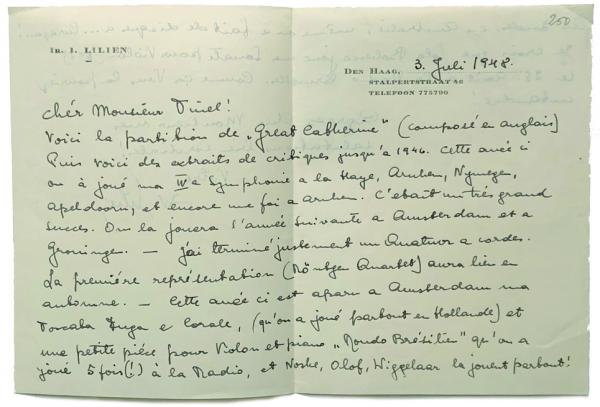 250
IR. I. LILIEN
DEN HAAG, 3. Juli 1948.
STALPERTSTRAAT 46
TELEFOON 775790
chér Monsieur Tinel!
Voici la partition de „Great Catherine" (composé en anglais)
Puis voici des extraits de critiques jusqu'à 1946. Cette année ci
on à joué ma IVe Symphonie a la Haye, Arnhem, Nymegen,
Apeldoorn, et encore une foi a Arnhem. C'était un trés grand
succes. On la jouera l'année suivante a Amsterdam et a
Groningen. — j'ai terminé justement un Quatuor a cordes.
La premiére représentation (Röntgen Quartet) aura lieu en
automne. — Cette année ci est aparu a Amsterdam ma
Toccata Fuga e Corale, (qu'on a joué partout en Hollande) et
une petite piéce pour Violon et piano „Rondo Brésilien" qu'on a
joué 5 fois(!) à la Radio, et Noske, Olof, Wiggelaar la jouent partout!